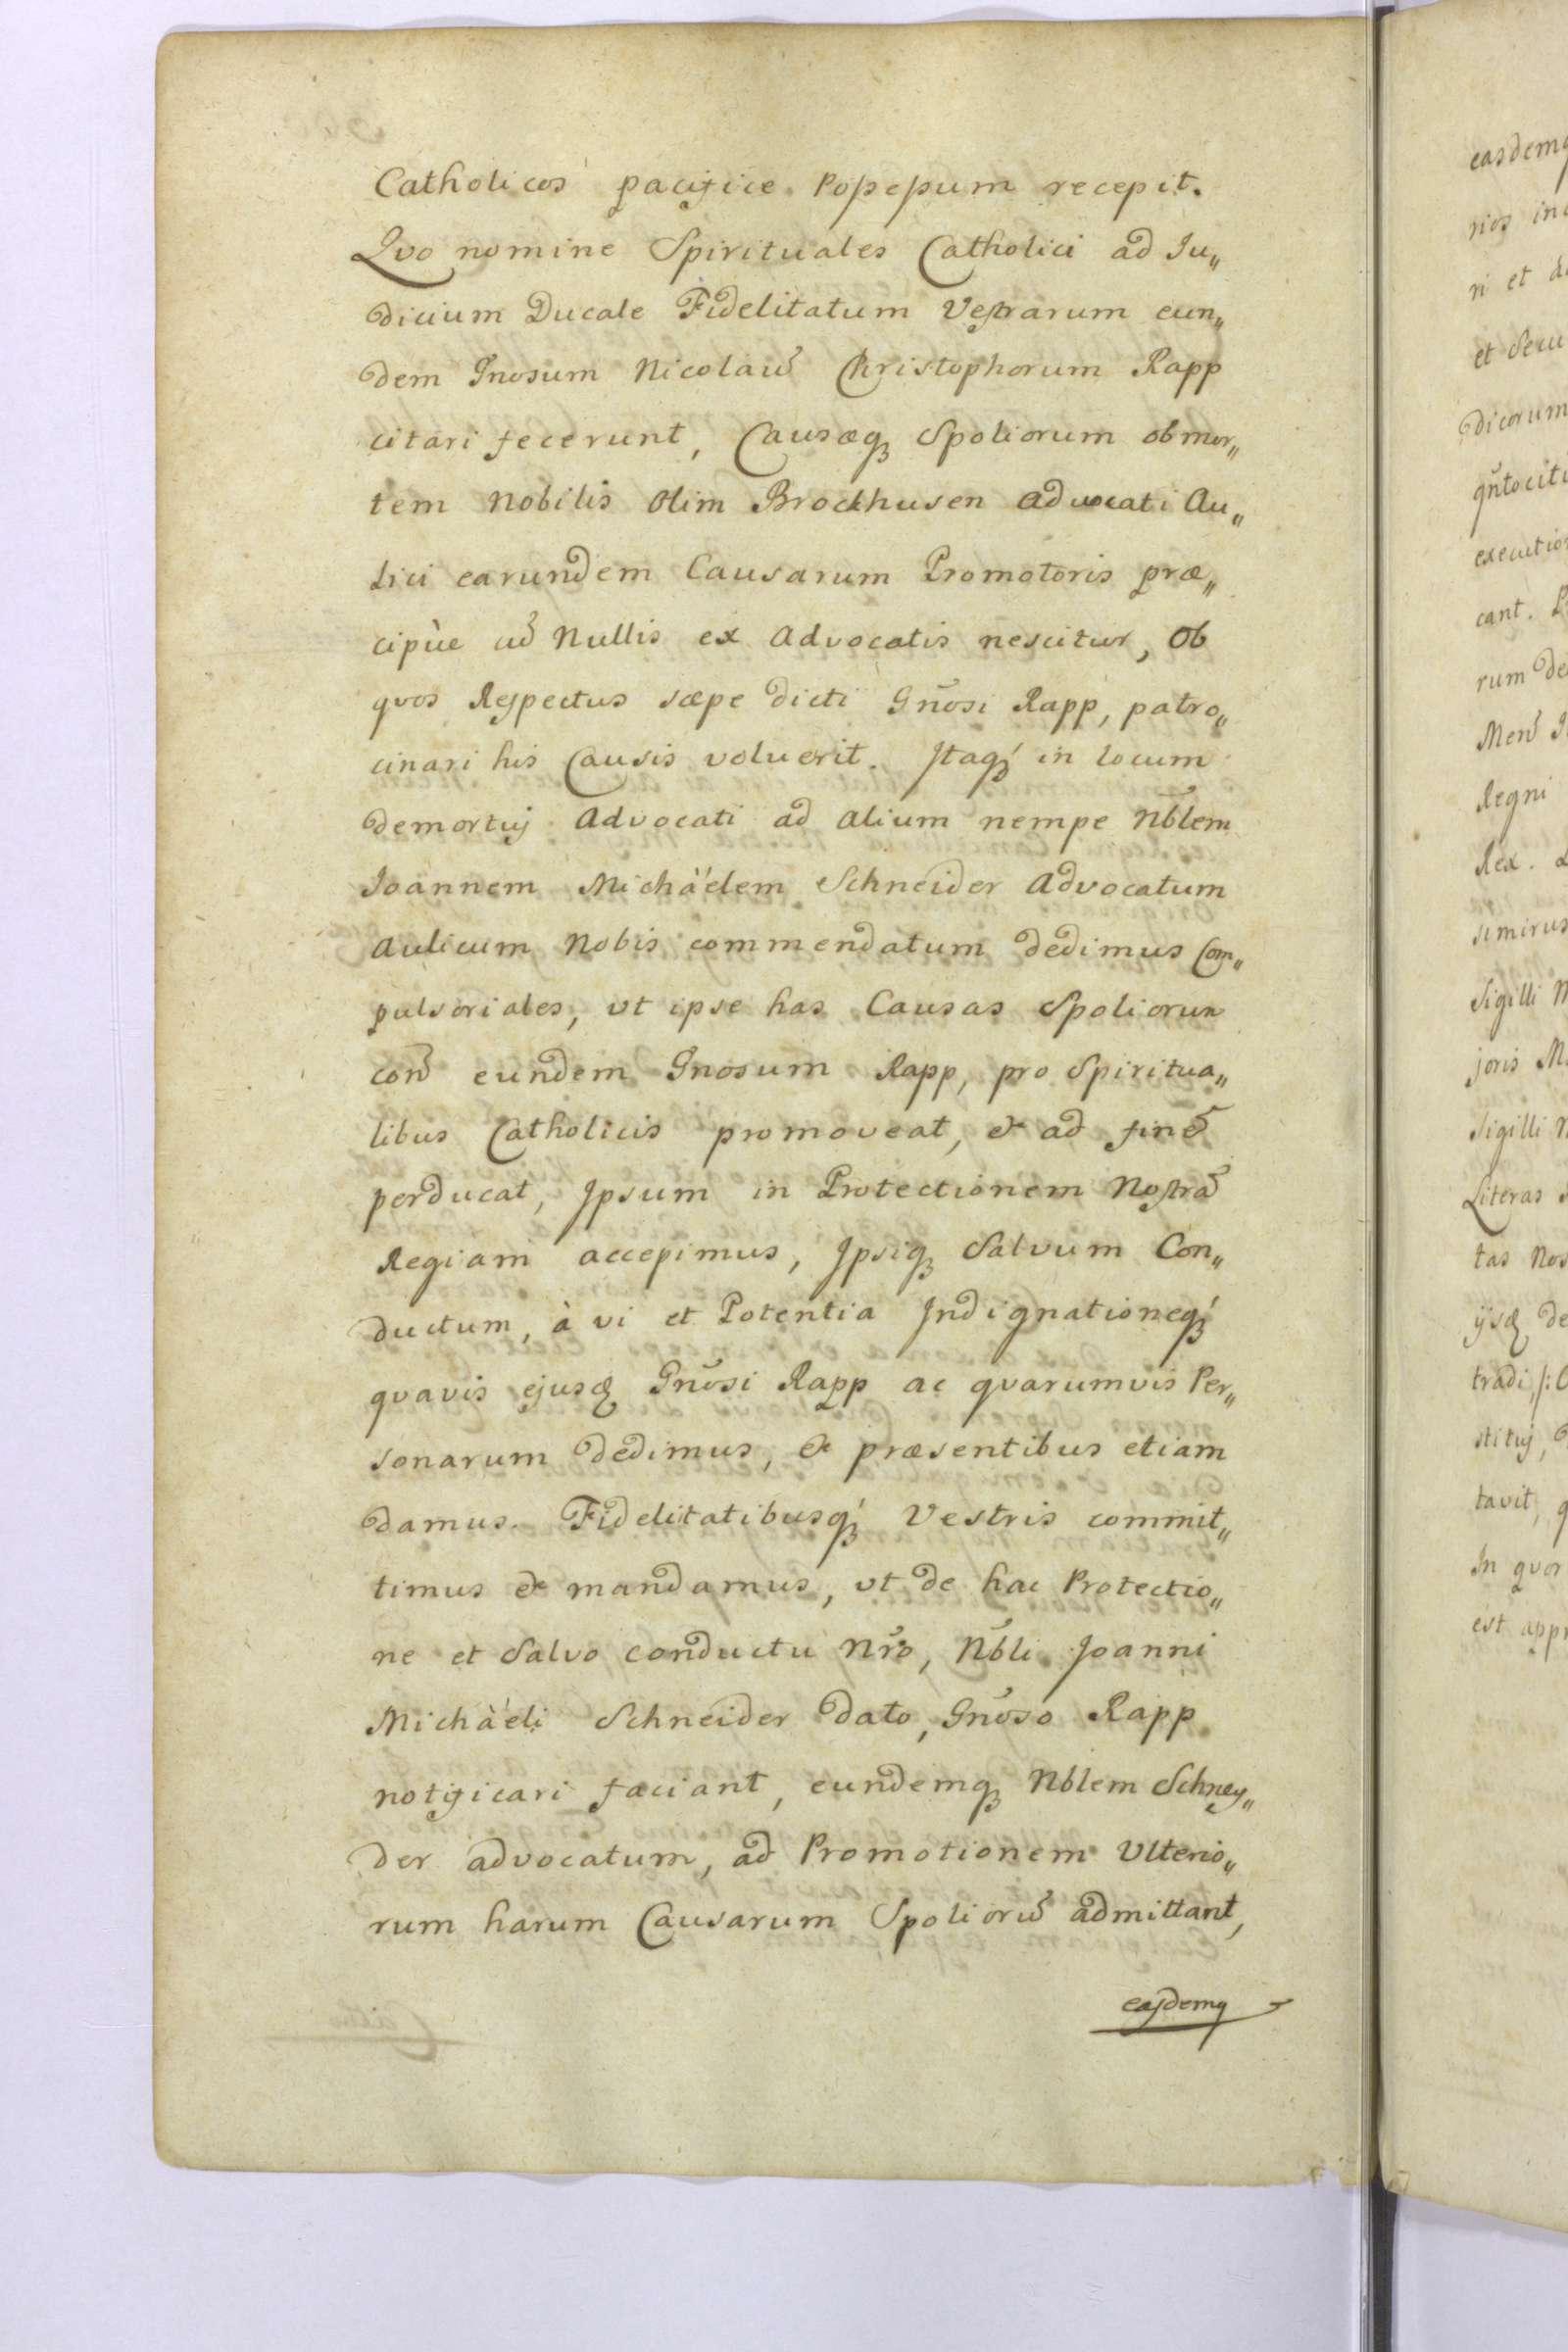 Catholicos pacifice Possessum recepit.
Qvo nomine Spirituales Catholici ad Iu„
dicium Ducale Fidelitatum Vestrarum eun„
dem Gnosum Nicolau̅ Christophorum Rapp
citari fecerunt, Causæq̨ Spoliorum ob mor„
tem Nobilis Olim Brockhusen Advocati Au„
lici earundem Causarum Promotoris præ„
cipùe cu̅ Nullis ex Advocatis nescitur, Ob
qvos Respectus sæpe dicti Gno̅si Rapp, patro„
cinari his Causis voluerit. Itaq́ in locum
demortuj Advocati ad alium nempe Nb̅lem
Joannem Michàélem Schneider Advocatum
Aulicum Nobis commendatum dedimus Com„
pulsoriales, ut ipse has Causas Spoliorum
con̅ eundem Gnosum Rapp, pro Spiritua„
libus Catholicis promoveat, & ad fine̅
perducat, Ipsum in Protectionem Nostra̅
Regiam accepimus, Ipsiq̨ Salvum Con„
ductum, à vi et Potentia Indignationeq́
qvavis ejusq̨ Gno̅si Rapp ac qvarumvis Per„
sonarum dedimus, & præsentibus etiam
damus. Fidelitatibusq́ Vestris commit„
timus & mandamus, ut de hac Protectio„
ne et Salvo conductu Nr̅o, Nb̅li Joanni
Michàéli Schneider dato, Gno̅so Rapp
notificari faciant, eundemq̨ Nblem Schney„
der advocatum, ad Promotionem Ulterio„
rum harum Causarum Spolioru̅ admittant,
easdemq
easdemq
rios
ri et
et Secu
dicorum
qn̅tociti
executio
cant.
rum de
Men̅
Regni
Rex.
simirus
Sigilli
joris
Sigilli
Literas
tas Nos
ijsq̨ de
tradi
stituj,
tavit,
In qvor
est appr